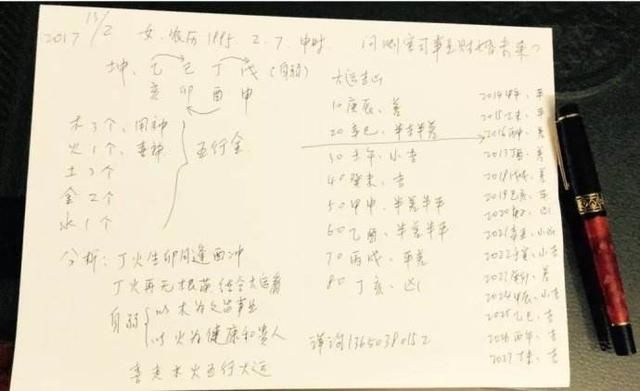 2017 15/2 女. 农历 1995. 2. 7. 申时 问测官司事业财婚未来?
坤: 乙 己 丁 戊 (自弱)
亥 卯 酉 申
木3个、用神
火1个、喜神
土3个
金2个
水1个
五行全
分析: 丁火生卯月逢酉冲
丁火再无根蒂结合大运看
自弱
以木为文书事业
以火为健康和贵人
喜走木火五行大运
大运吉凶
10 庚辰、差
20 辛巳、半吉半差
30 壬午、小吉
40 癸未、吉
50 甲申、半差半平
60 乙酉、半差半平
70 丙戌、平差
80 丁亥、凶
详询13650380152
2014甲午、平
2015乙未、平
2016丙申、差
2017丁酉、差
2018戊戌、差
2019己亥、平
2020庚子、凶
2021辛丑、小凶
2022壬寅、小吉
2023癸卯、差
2024甲辰、小吉
2025乙巳、吉
2026丙午、吉
2027丁未、吉